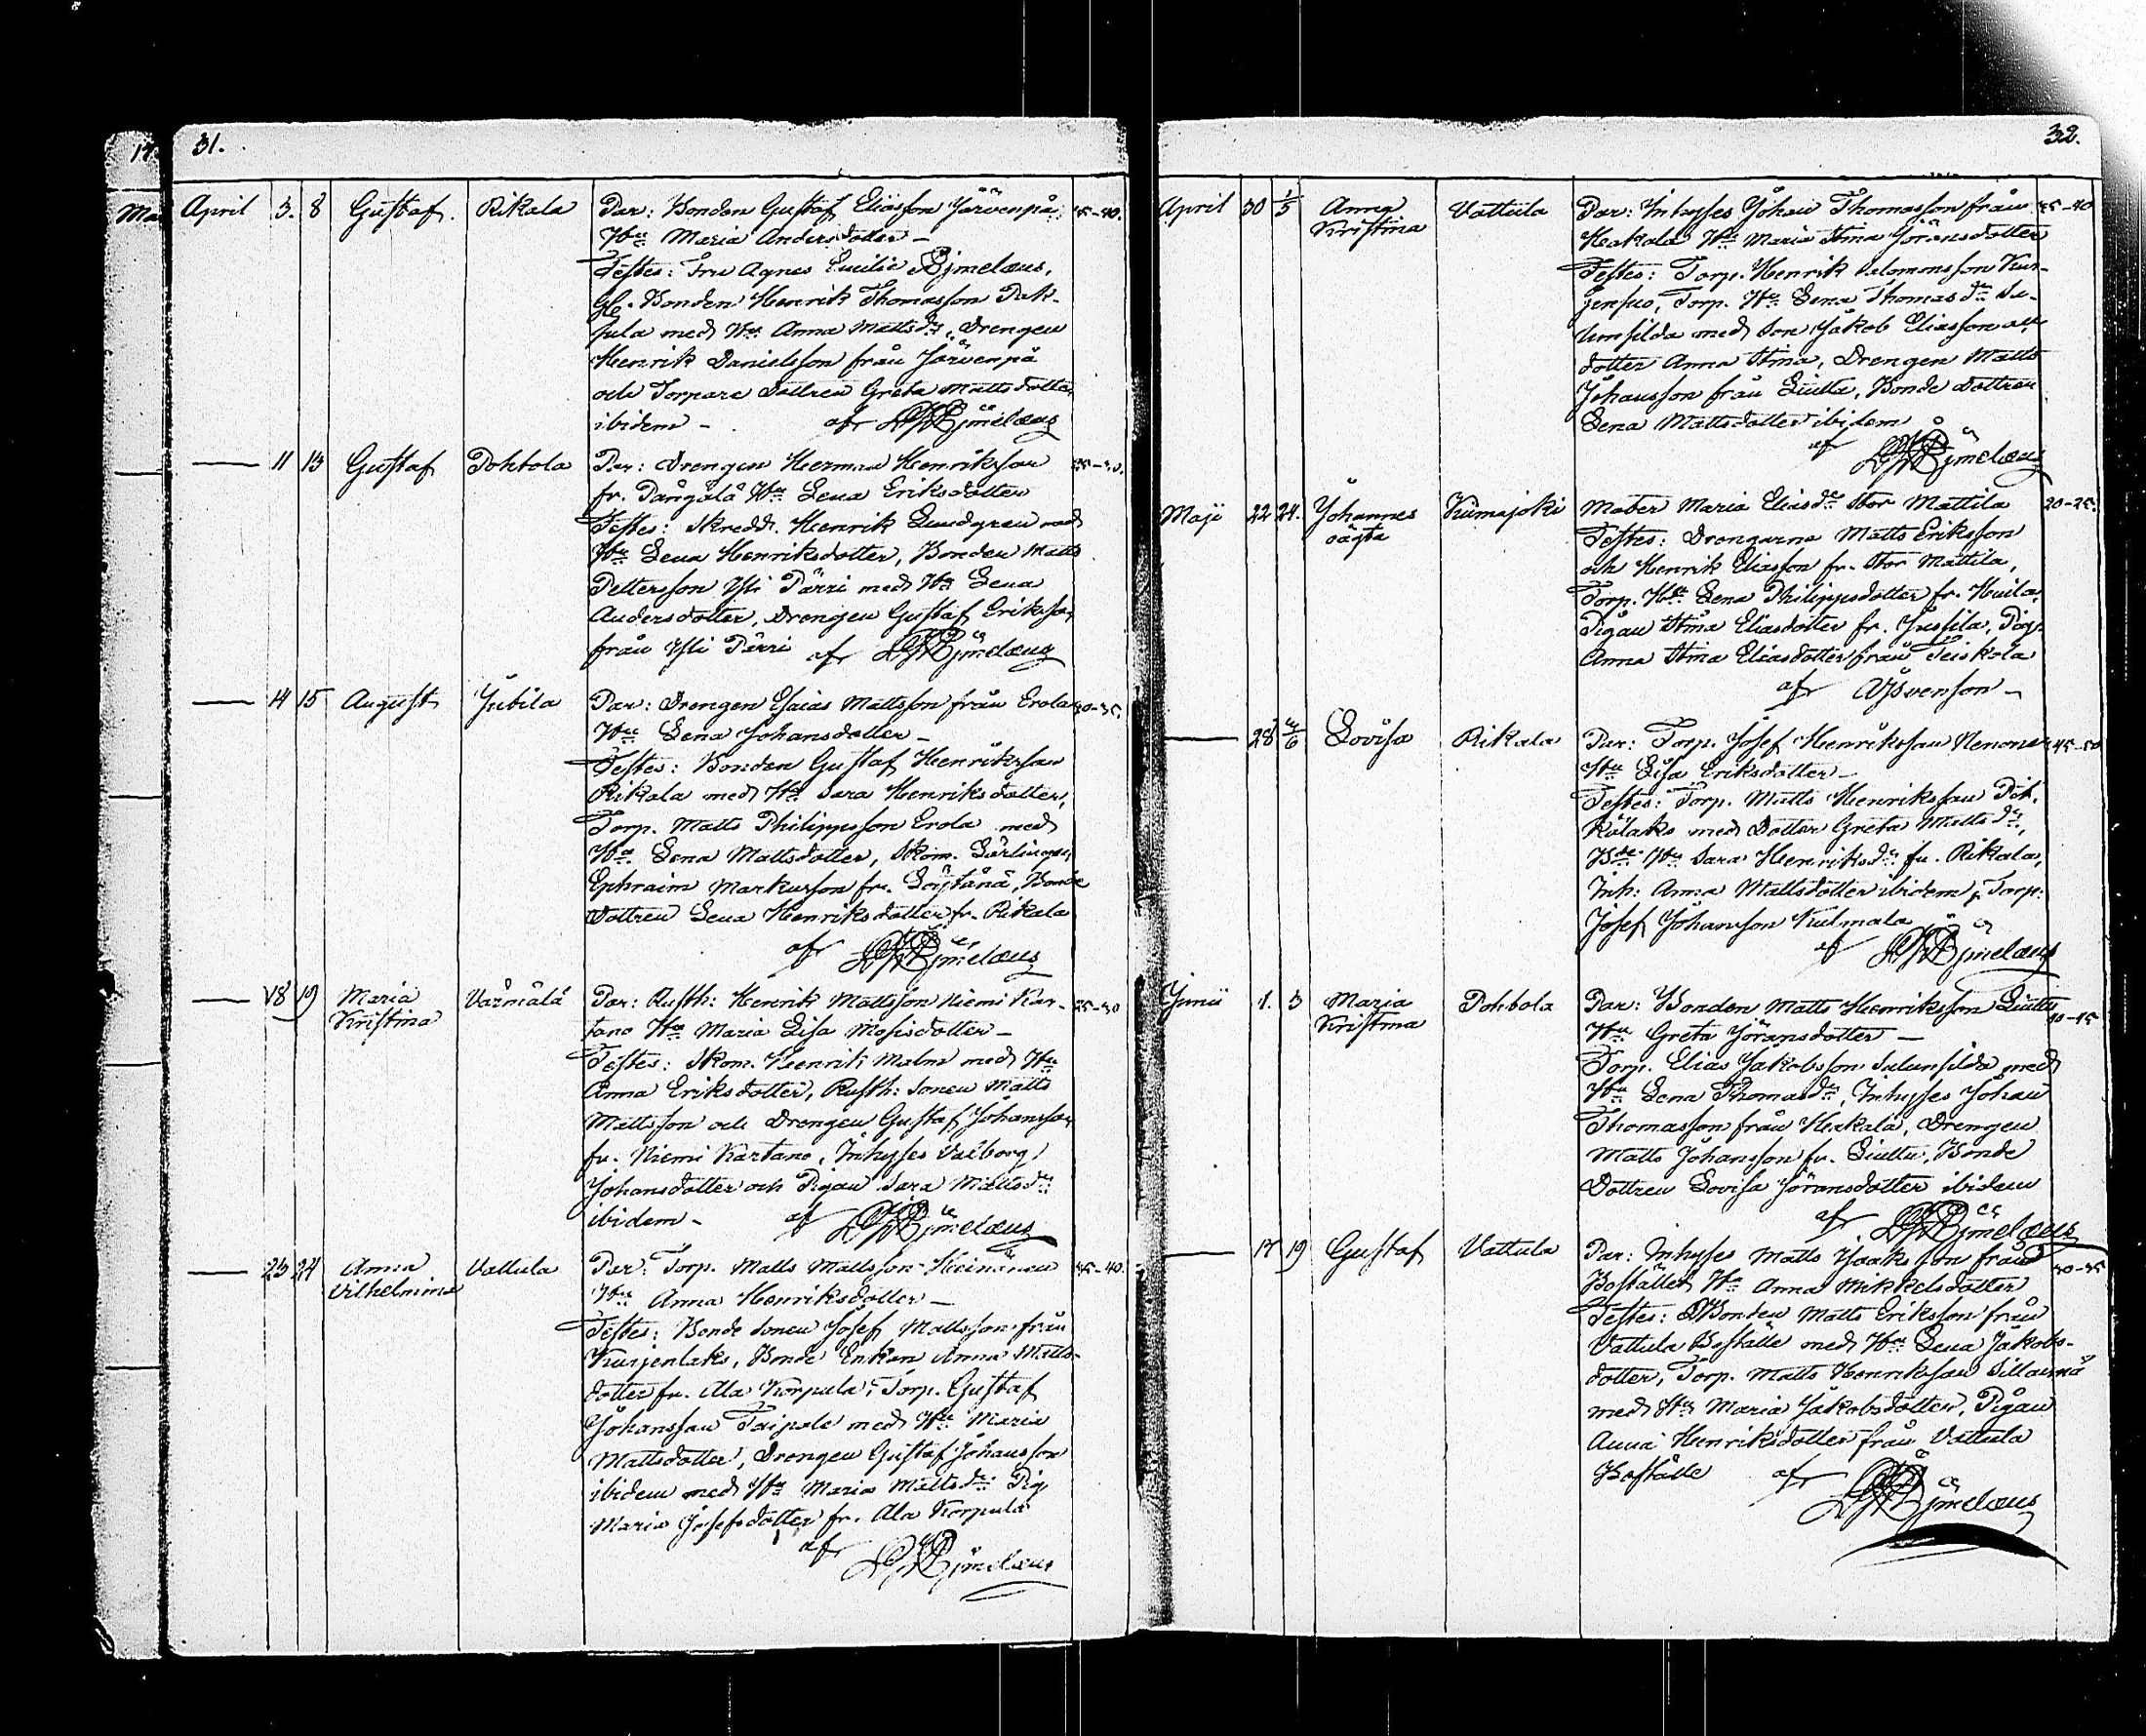 31.
April 3. 8 Gustaf. Rikala Par: Bonden Gustaf Eliasson Järvenpä, 35-40.
Hu Maria Andersdotter –
Testes: Fru Agnes Emilie Björnelæus,
Gl. Bonden Henrik Thomasson Pak-
jula med Hu Anna Mattsdr, Drengen
Henrik Danielsson från Järvenpä
och Torpare dottren Greta Mattsdotter
ibidem –
— 11 13 Gustaf Pohtola Par: Drengen Herman Henriksson
fr. Pångälä Hu Lena Eriksdotter
Testes: Skredd. Henrik Lundgren med
Hu Lena Henriksdotter, Bonden Matts
Pettersson Yli Pärri med Hu Lena
Andersdotter, Drengen Gustaf Eriksson
från Yli Pärri af
— 14 15 August Jutila Par: Drengen Esaias Mattsson från Erola 30-35.
Hu Lena Johansdotter –
Testes: Bonden Gustaf Henriksson
Rikala med Hu Sara Henriksdotter,
Torp. Matts Philippsson Erola med
Hu Lena Mattsdotter, Skom. Lärlingen
Ephraim Markusson fr. Bonde
dottren Lena Henriksdotter fr. Rikala
af
— 18 19 Maria Kristina Värmälä Par: Rusth: Henrik Mattsson Niemi Kar- 25-30
tano Hu Maria Lisa Mosisdotter –
Testes: Skom. Henrik Malm med Hu
Anna Eriksdotter, Rusth: Sonen Matts
Mattsson och Drengen Gustaf Johansson
fr. Niemi Kartano, Inhyses Valborg
Johansdotter och Pigan Sara Mattsdr
ibidem – af
— 23 24 Anna Vilhelmina Vattula Par: Torp. Matts Mattsson Heinänen 35-40.
Hu Anna Henriksdotter –
Testes: Bonde Sonen Josef Mattsson från
Kurjenlaks, Bonde Enkan Anna Matts-
dotter fr. Ala Korpula, Torp. Gustaf
Johansson Taipale med Hu Maria
Mattsdotter, Drengen Gustaf Johansson
ibidem med Hu Maria Mattsdr Pig.
Maria Josefsdotter fr. Ala Korpula
af
32.
April 30 1/5 Anna Kristina Vattula Par: Inhyses Johan Thomasson från 35-40
Hakala Hu Maria Stina Göransdotter
Testes: Torp. Henrik Salomonsson Kur-
jensuo, Torp. Hu Lena Thomasdr Sa-
lunsilda med Son Jakob Eliasson och
dotter Anna Stina, Drengen Matts
Johansson från Liutta, Bonde dottren
Lena Mattsdotter ibidem
af
Maji 22 24. Johannes oägta Kumajoki Mater Maria Eliasdr Stor Mattila 20-25.
Testes: Drengarne Matts Eriksson
och Henrik Eliasson fr. Stor Mattila,
Torp. Hu Lena Philippsdotter fr. Huila,
Pigan Stina Eliasdotter fr. Jussila, Pig.
Anna Stina Eliasdotter från Teiskola
af
— 28 4/6 Lovisa Rikala Par: Torp. Josef Henriksson Nenonen 45-50
Hu Lisa Eriksdotter –
Testes: Torp. Matts Henriksson Pit-
kälaks med dotter Greta Mattsdr,
Bde Hu Sara Henriksdr fr. Rikala,
Inh: Anna Mattsdotter ibidem, Torp:
Josef Johansson Kulmala
af
Junii 1. 3 Maria Kristina Pohtola Par: Bonden Matts Henriksson Liutta
Hu Greta Göransdotter –
Torp. Elias Jakobsson Salunsilda med
Hu Lena Thomasdr, Inhyses Johan
Thomasson från Hakala, Drengen
Matts Johansson fr. Liutta, Bonde
Dottren Lovisa Göransdotter ibidem
af
— 17 19 Gustaf Vattula Par: Inhyses Matts Isaksson från
Bostället Hu Anna Mikkelsdotter
Testes: Bonden Matts Eriksson från
Vattula Boställe med Hu Lena Jakobs-
dotter, Torp. Matts Henriksson
med Hu Maria Jakobsdotter, Pigan
Anna Henriksdotter från Vattula
Boställe af